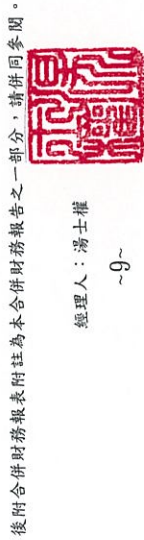 後附合併財務報表附註為本合併財務報告之一部分，請併同參閱。
經理人：湯士權
~9~